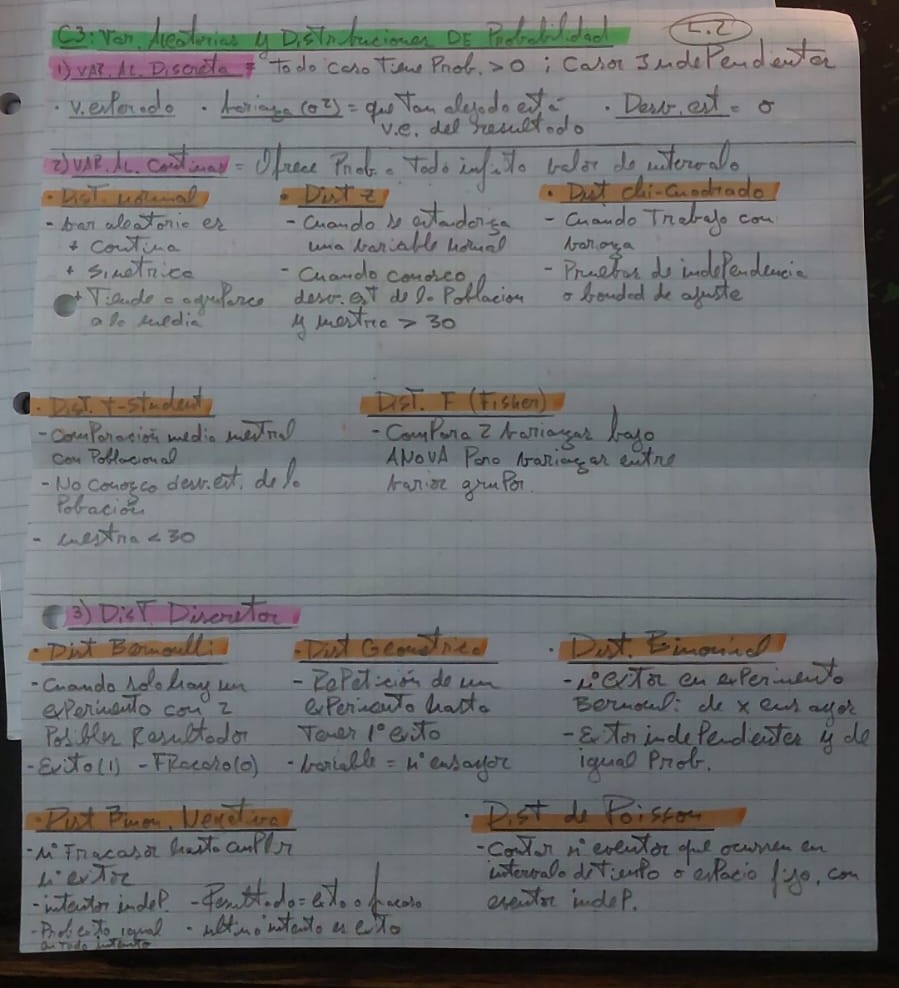 C3: Var. Aleatorias y Distribuciones DE Probabilidad
C.2
1) VAR. AL. Discreta = Todo caso Tiene Prob. > 0 ; Casos Independientes
· V. esperado · Varianza (σ²) = que Tan alejado está
V.e. del resultado
· Desv. est = σ
2) VAR. AL. Continua = Ofrece Prob. a Todo infito valor de intervalo
· Dist. normal
- Var aleatorio es
+ Contina
+ Simetrica
+ Tiende a agruparce
a la media
· Dist Z
- Cuando se estandoriza
una variable normal
- Cuando conosco
desv. est de la Poblacion
y mestra > 30
· Dist chi-Cuadrado
- Cuando Trabajo con
varianza
- Pruebas de independencia
o bondad de ajuste
· Dist. t-student
- Comparación media mestral
con Poblacional
- No Conozco desv. est. de la
Pobación
- mestra < 30
Dist. F (Fisher)
- Compara 2 varianzas bajo
ANOVA Para varianzas entre
varios grupos.
3) Dist. Discretas
· Dist Bernoulli
- Cuando solo hay un
experimento con 2
Posibles Resultados
- Exito (1) - FRacaso (0)
· Dist Geometrica
- RePetición de un
experimento hasta
Tener 1° exito
- Variable = n° ensayos
· Dist. Binomial
- n° exitos en experimento
Bernouli de x ensayos
- Exitos independientes y de
igual Prob.
· Dist Binom. Negativa
- n° Fracasos hasta cumplir
n° exitos
- intentos indep. - Resultado = exito o fracaso
- Prob exito igual
en todo intento
- ultimo intento es exito
· Dist de Poisson
- Contar n° eventos que ocurren en
intervalo de Tiempo o espacio fijo, con
eventos indep.